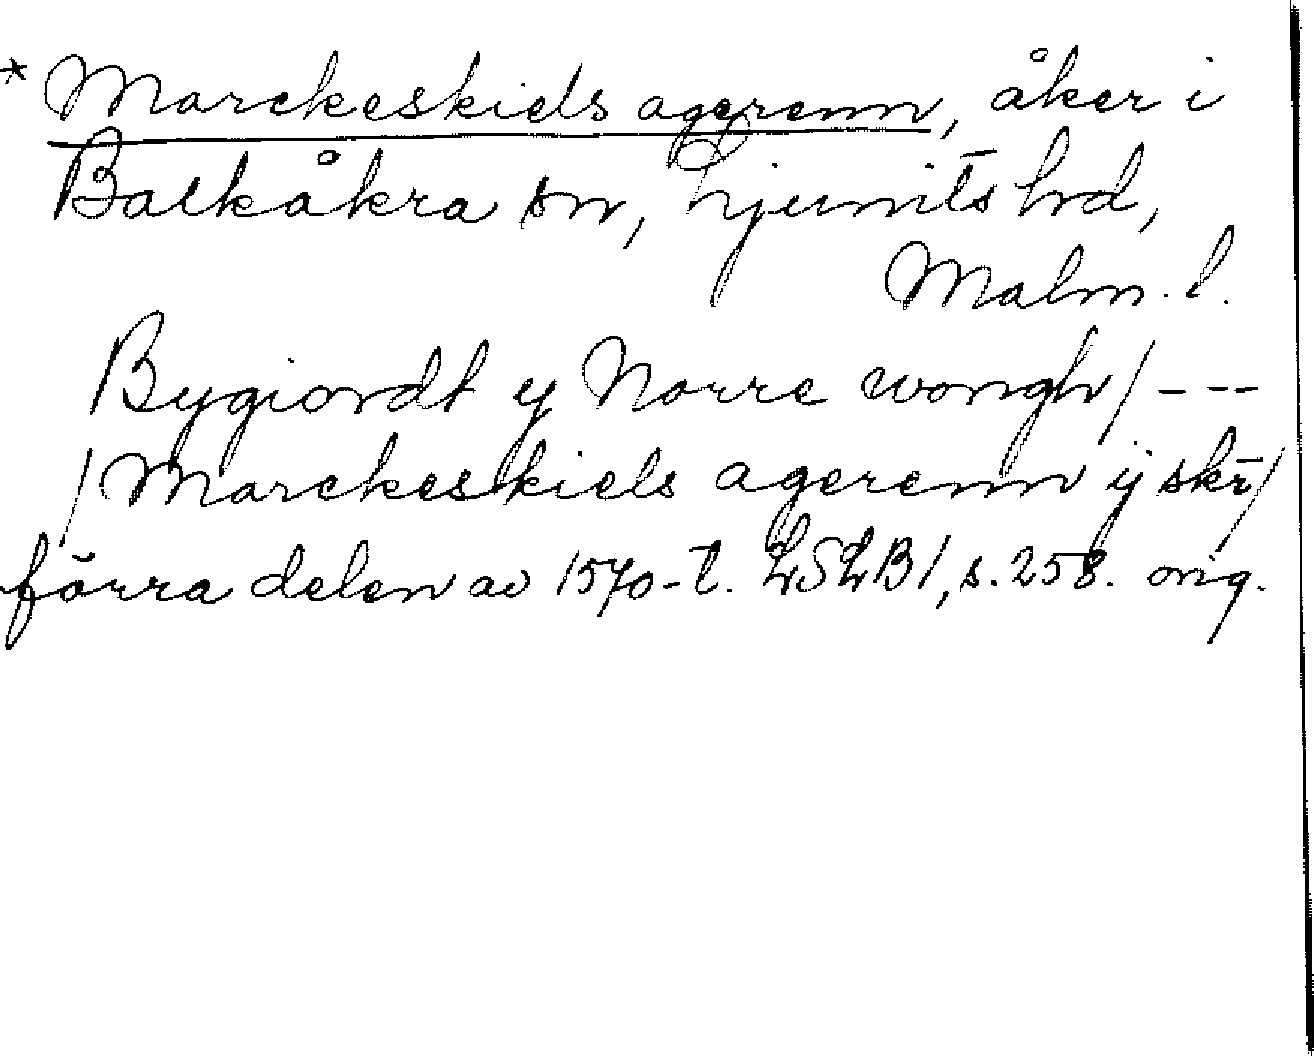 * Marckeskiels agerenn, åker i
Balkåkra sn, Ljunits hd,
Malm. l.
Bygiordt y Norre wongh / ---
/ Marckeskiels agerenn ij skr̄ /
förra delen av 1570-t. LSLB 1, s. 258. orig.